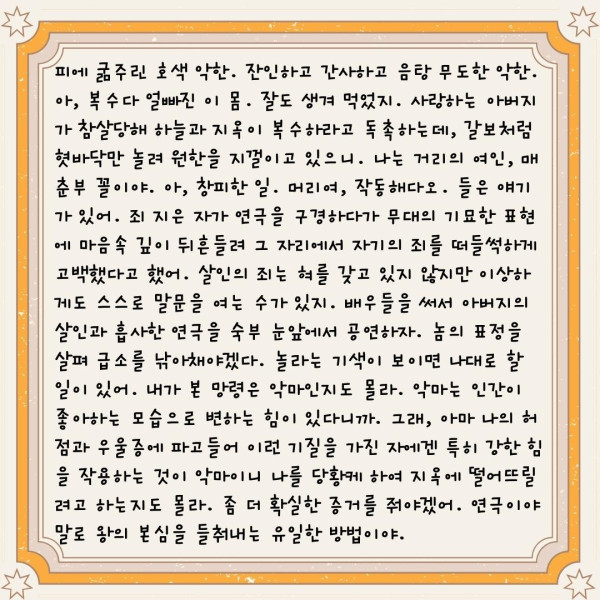 피에 굶주린 호색 악한. 잔인하고 간사하고 음탕 무도한 악한.
아, 복수다 얼빠진 이 몸. 잘도 생겨 먹었지. 사랑하는 아버지
가 참살당해 하늘과 지옥이 복수하라고 독촉하는데, 갈보처럼
혓바닥만 놀려 원한을 지껄이고 있으니. 나는 거리의 여인, 매
춘부 꼴이야. 아, 창피한 일. 머리여, 작동해다오. 들은 얘기
가 있어. 죄 지은 자가 연극을 구경하다가 무대의 기묘한 표현
에 마음속 깊이 뒤흔들려 그 자리에서 자기의 죄를 떠들썩하게
고백했다고 했어. 살인의 죄는 혀를 갖고 있지 않지만 이상하
게도 스스로 말문을 여는 수가 있지. 배우들을 써서 아버지의
살인과 흡사한 연극을 숙부 눈앞에서 공연하자. 놈의 표정을
살펴 급소를 낚아채야겠다. 놀라는 기색이 보이면 나대로 할
일이 있어. 내가 본 망령은 악마인지도 몰라. 악마는 인간이
좋아하는 모습으로 변하는 힘이 있다니까. 그래, 아마 나의 허
점과 우울증에 파고들어 이런 기질을 가진 자에겐 특히 강한 힘
을 작용하는 것이 악마이니 나를 당황케 하여 지옥에 떨어뜨릴
려고 하는지도 몰라. 좀 더 확실한 증거를 쥐야겠어. 연극이야
말로 왕의 본심을 들춰내는 유일한 방법이야.